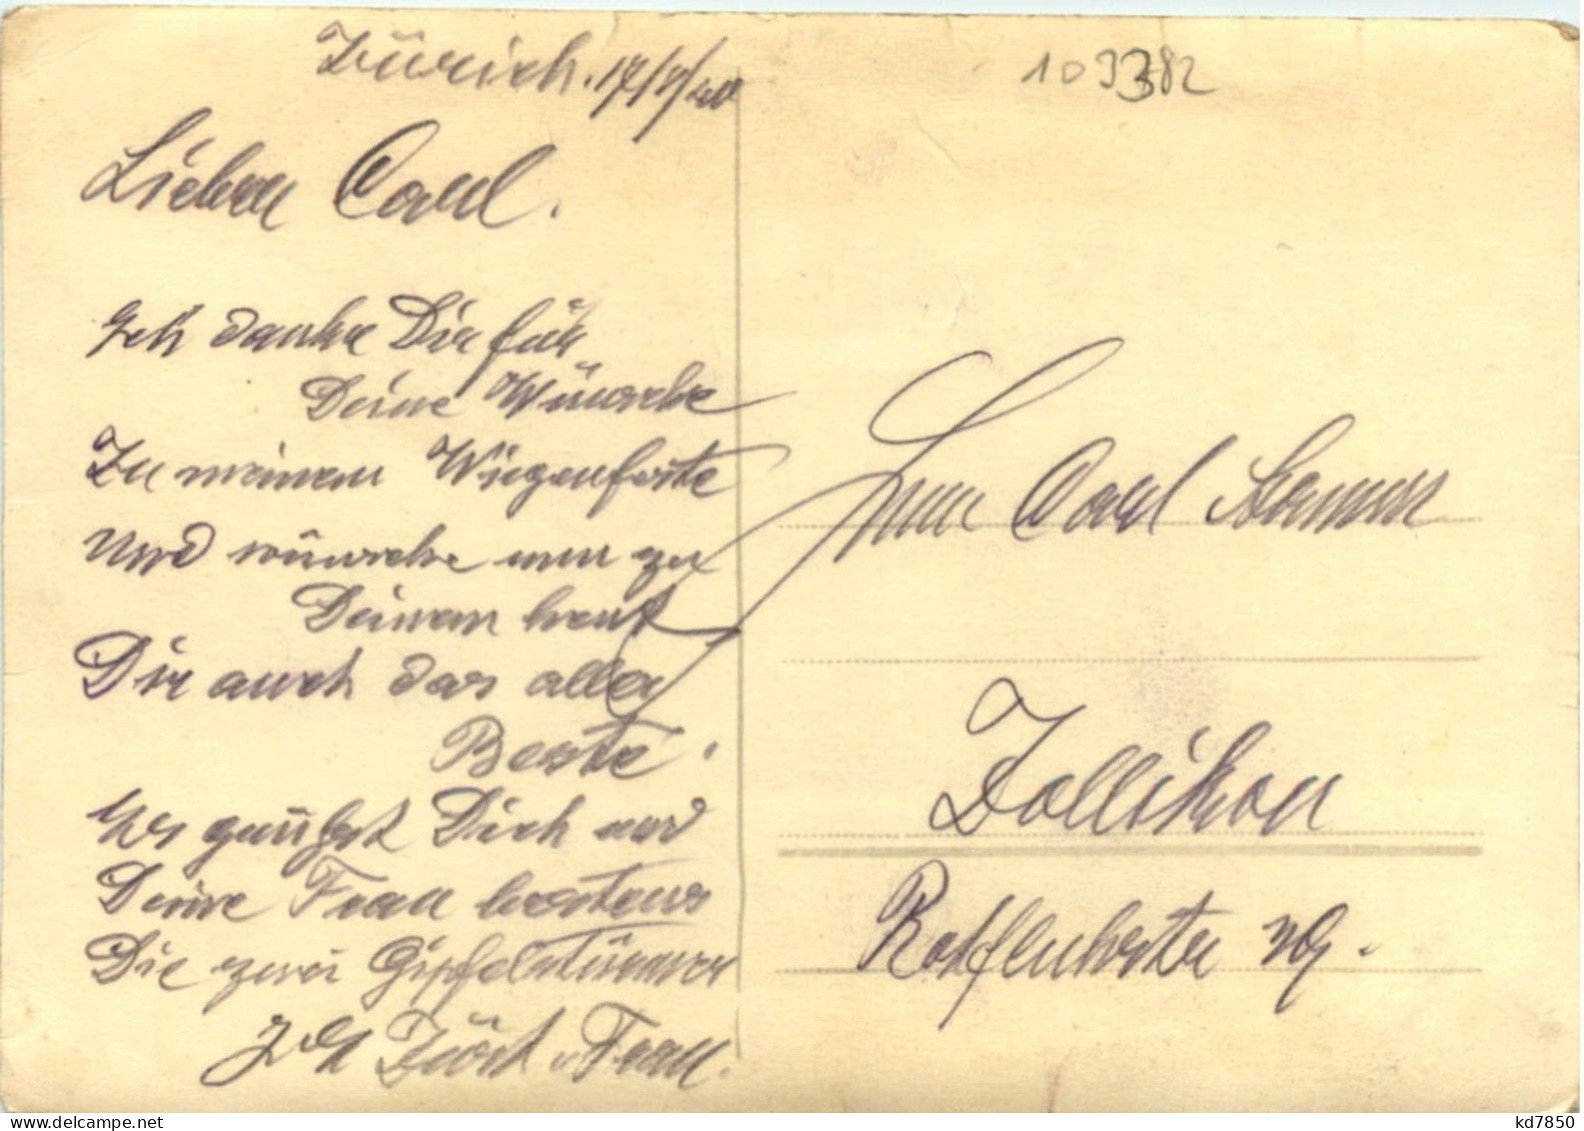 Zürich. 17/7/40
Lieber Carl.
Ich danke Dir für
Deine Wünsche
Zu meinem Wiegenfeste
Und wünsche nun zu
Deinem heut
Dir auch das aller
Beste.
Es grüsst Dich und
Deine Frau bestens
Die zwei Gipfelstürmer
u. Frau.
109382
Carl
Zollikon
29.
kd7850